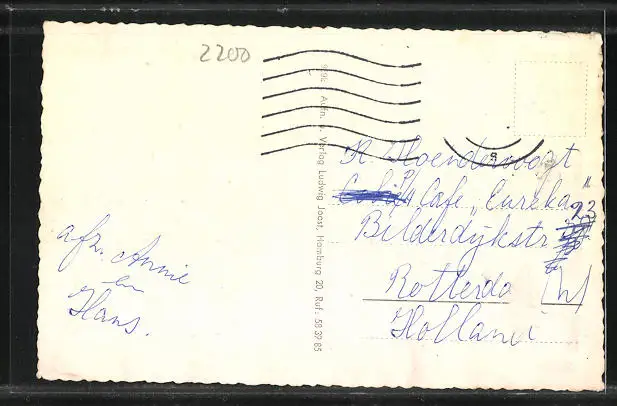 2200
afz. Annie
en
Hans.
Aufn. u. Verlag Ludwig Joost, Hamburg 20, Ruf: 58 39 85
K. Hoendervoogt
Cafe „Eureka"
Bilderdijkstr 23
Rotterda
Holland